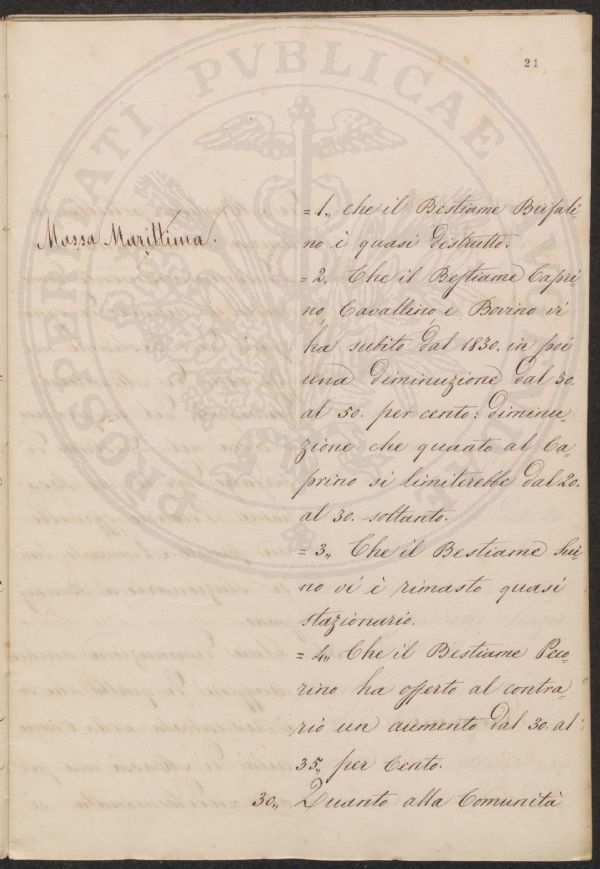 21
PROSPERITATI PVBLICAE
Massa Marittima.
= 1„ che il Bestiame Bufali-
no è quasi distrutto.
= 2. Che il Bestiame Capri
no, Cavallino, e Bovino vi
ha subito dal 1830. in poi
una diminuzione dal 30.
al 50. per cento: diminu-
zione che quanto al Ca-
prino si limiterebbe dal 20.
al 30. soltanto.
= 3„ Che il Bestiame Sui-
no vi è rimasto quasi
stazionario.
= 4„ Che il Bestiame Peco-
rino ha offerto al contra-
rio un aumento dal 30. al
35„ per Cento.
30„ Quanto alla Comunità